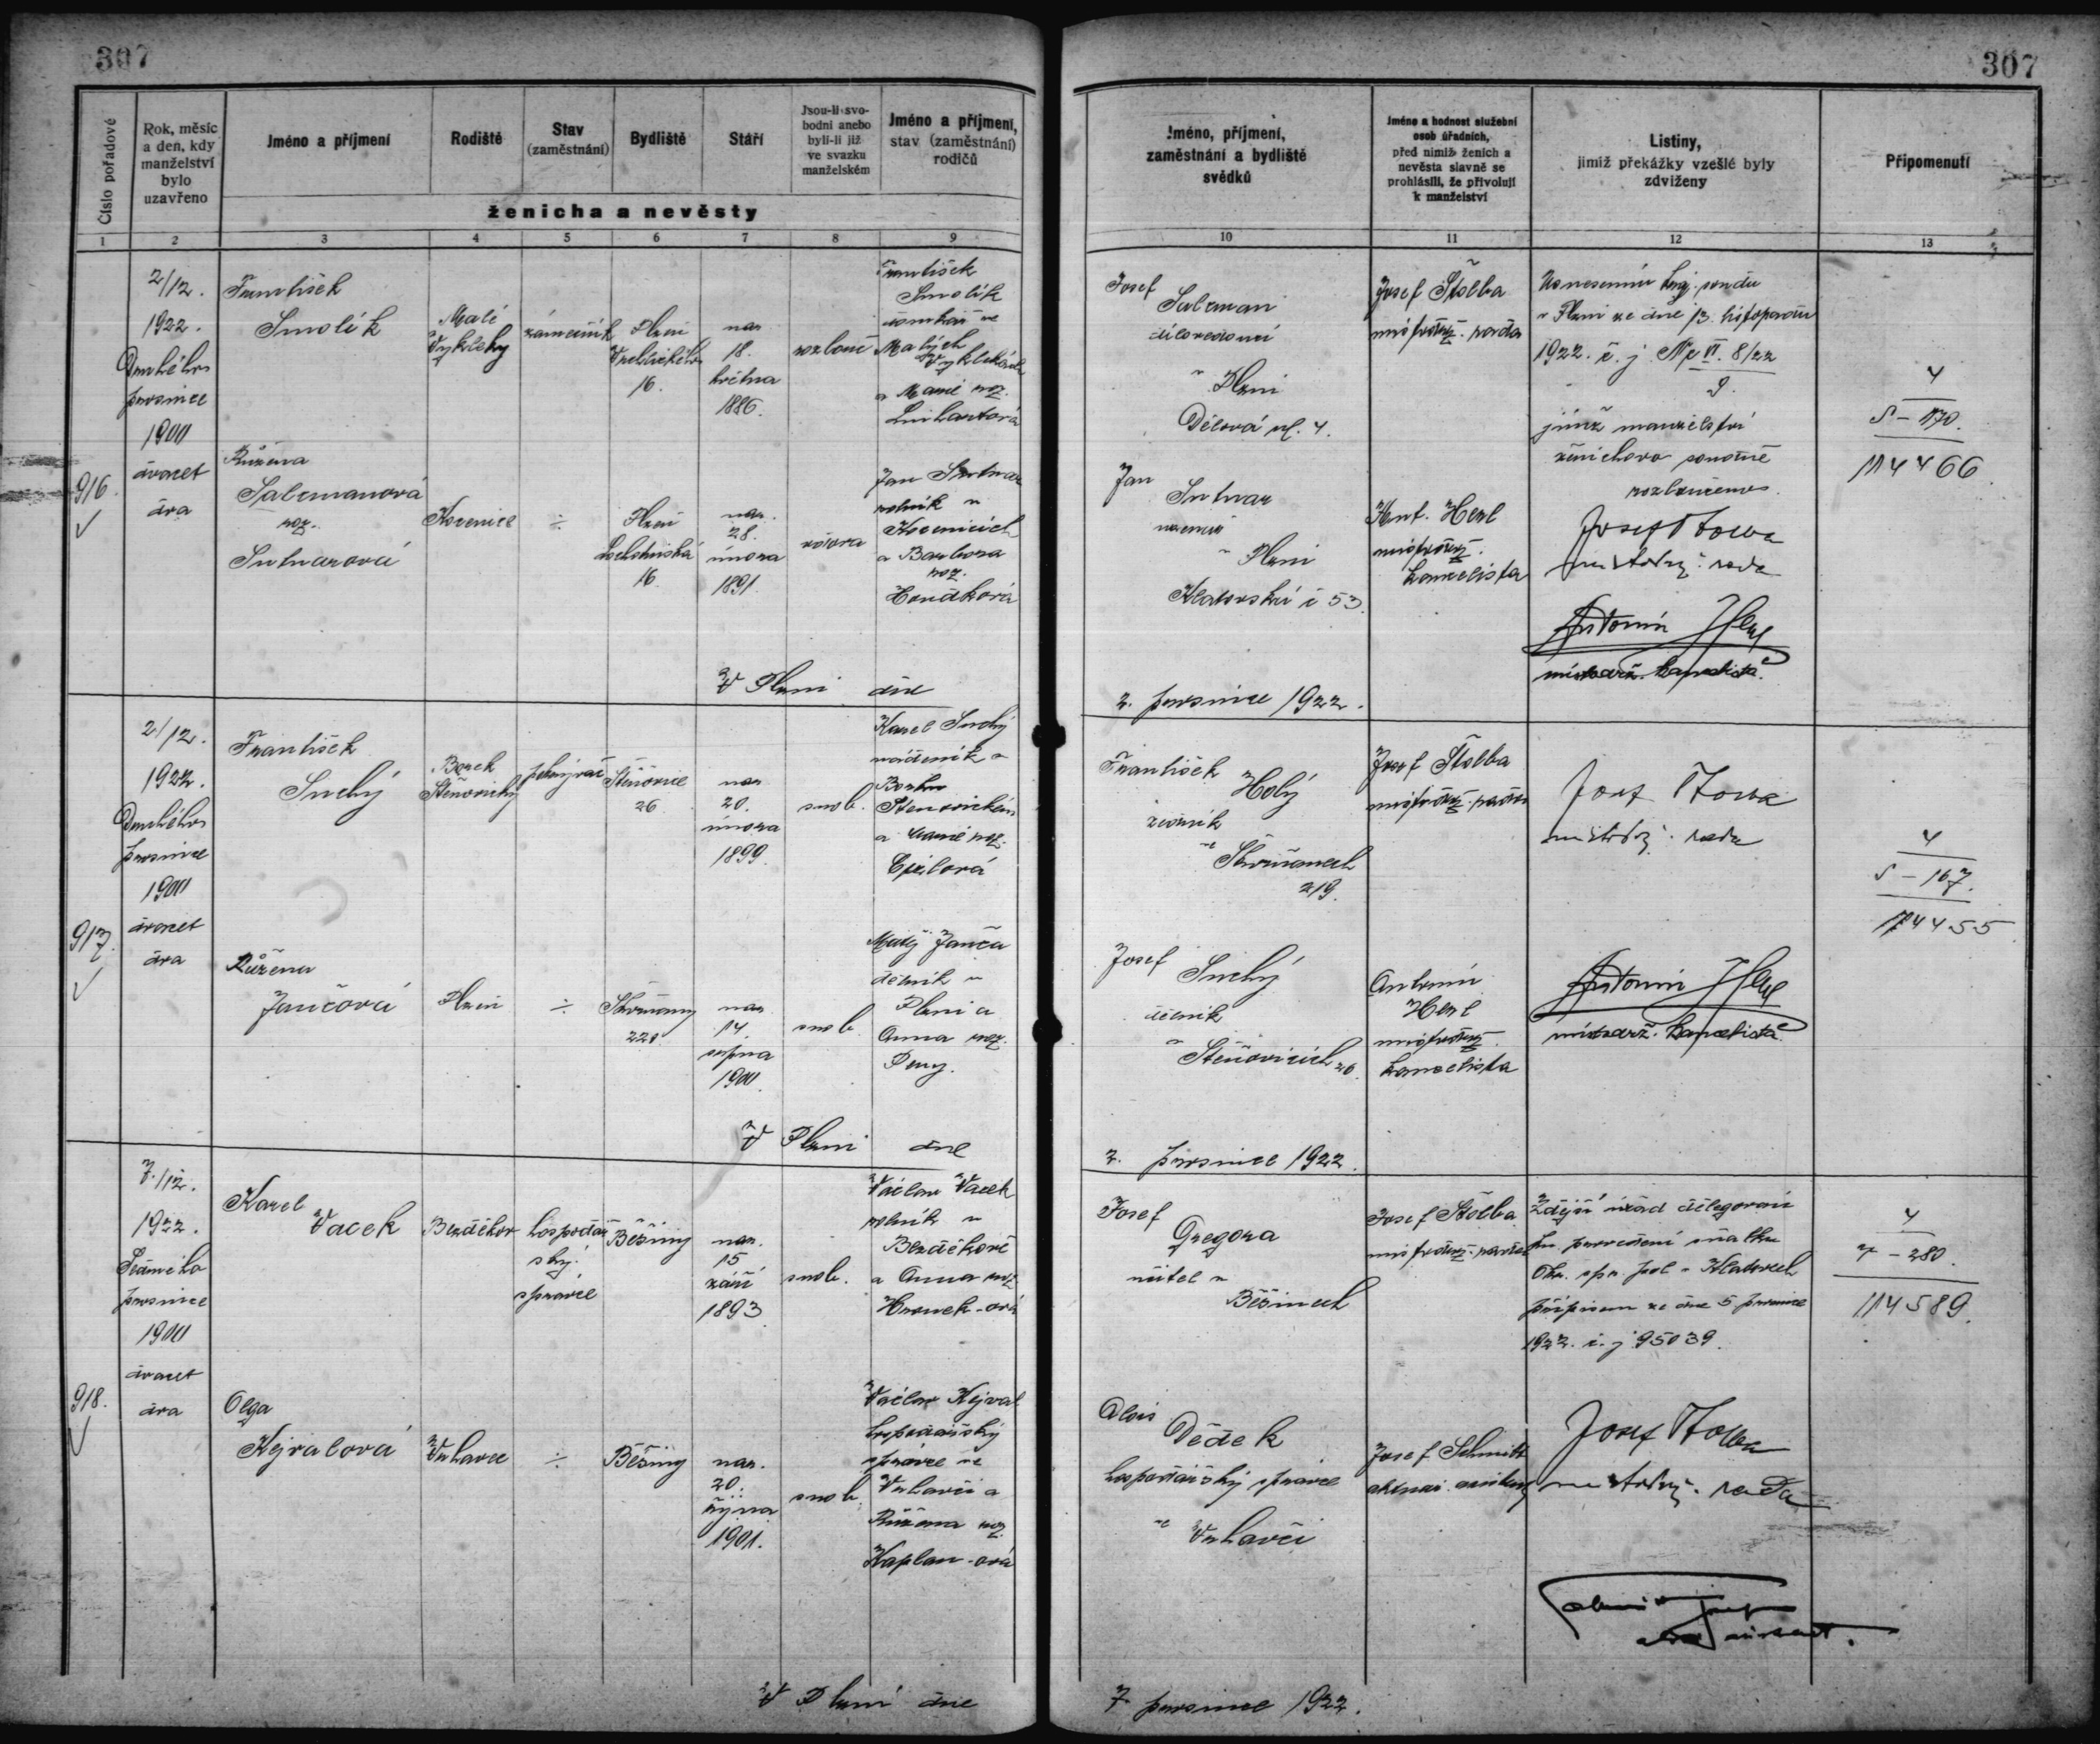 307
307
Číslo pořadové
Rok, měsíc
a den, kdy
manželství
bylo
uzavřeno
Jméno a příjmení
Rodiště
Stav
(zaměstnání)
Bydliště
Stáří
Jsou-li svo-
bodni anebo
byli-li již
ve svazku
manželském
Jméno a příjmení,
stav (zaměstnání)
rodičů
ženicha a nevěsty
Jméno, příjmení,
zaměstnání a bydliště
svědků
Jméno a hodnost služební
osob úřadních,
před nimiž ženich a
nevěsta slavně se
prohlásili, že přivolují
k manželství
Listiny,
jimiž překážky vzešlé byly
zdviženy
Připomenutí
1 2 3 4 5 6 7 8 9 10 11 12 13
916.
2/12.
1922.
Druhého
prosince
1900
dvacet
dva
František
Smolík
Malé
Vykleky
zámečník
Plzeň
16.
nar.
18.
května
1886.
František
Smolík
a Marie roz.
Josef
Salzman
v Plzni
Dělová ul. 4.
Josef Štolba
místodrž. rada
Usnesením kraj. soudu
v Plzni ze dne 13. listopadu
1922. č. j. Nc VI. 8/22
9.
jímž manželství
ženichovo
rozloučeno.
4
5 - 170.
114466
Růžena
Salzmanová
roz.
Sutnarová
Kozenice
÷
Plzeň
16.
nar.
28.
února
1891.
vdova
Jan Sutnar
rolník v
Kozenicích
a Barbora
roz.
Jan
Sutnar
v Plzni
Klatovská č 53.
Ant. Herl
místodrž.
kancelista
Josef Štolba
místodrž. rada
Antonín Herl
místodrž. kancelista
V Plzni dne
2. prosince 1922.
917.
2/12.
1922.
Druhého
prosince
1900
dvacet
dva
František
Suchý
Borek
Štěnovický
Štěnovice
26
nar.
20.
února
1899.
svob.
Karel Suchý
nádeník v
Borku
Štěnovickém
a Marie roz.
František
Holý
ve Skvrňanech
219.
Josef Štolba
místodrž. rada
Josef Štolba
místodrž. rada
4
5 - 167.
114455
Růžena
Jančová
Plzeň
÷
Skvrňany
nar.
14.
srpna
1900.
svob.
Matěj Janča
dělník v
Plzni a
Anna roz.
Josef
Suchý
dělník
v Štěnovicích 26.
Antonín
Herl
místodrž.
kancelista
Antonín Herl
místodrž. kancelista
V Plzni dne
2. prosince 1922.
918.
7./12.
1922.
Sedmého
prosince
1900
dvacet
dva
Karel
Vacek
Bezděkov
hospodář
ský
správce
Běšiny
nar.
15
září
1893.
svob.
Václav Vacek
rolník v
Bezděkově
a Anna roz.
Josef
Gregora
učitel v
Běšinech
Josef Štolba
místodrž. rada
Zdejší úřad delegován
ku provedení sňatku
Okr. spr. pol. v Klatovech
přípisem ze dne 5 prosince
1922. č. j 95039.
4
7 - 280.
114589.
Olga
Kejvalová
Vrhaveč
÷
Běšiny
nar.
20.
října
1901.
svob.
Václav Kejval
hospodářský
správce ve
Vrhavči a
Růžena roz.
Kaplan-ová
Alois
Dědek
hospodářský správce
ve Vrhavči
Josef Schmitt
Josef Štolba
místodrž. rada
V Plzni dne
7. prosince 1922.